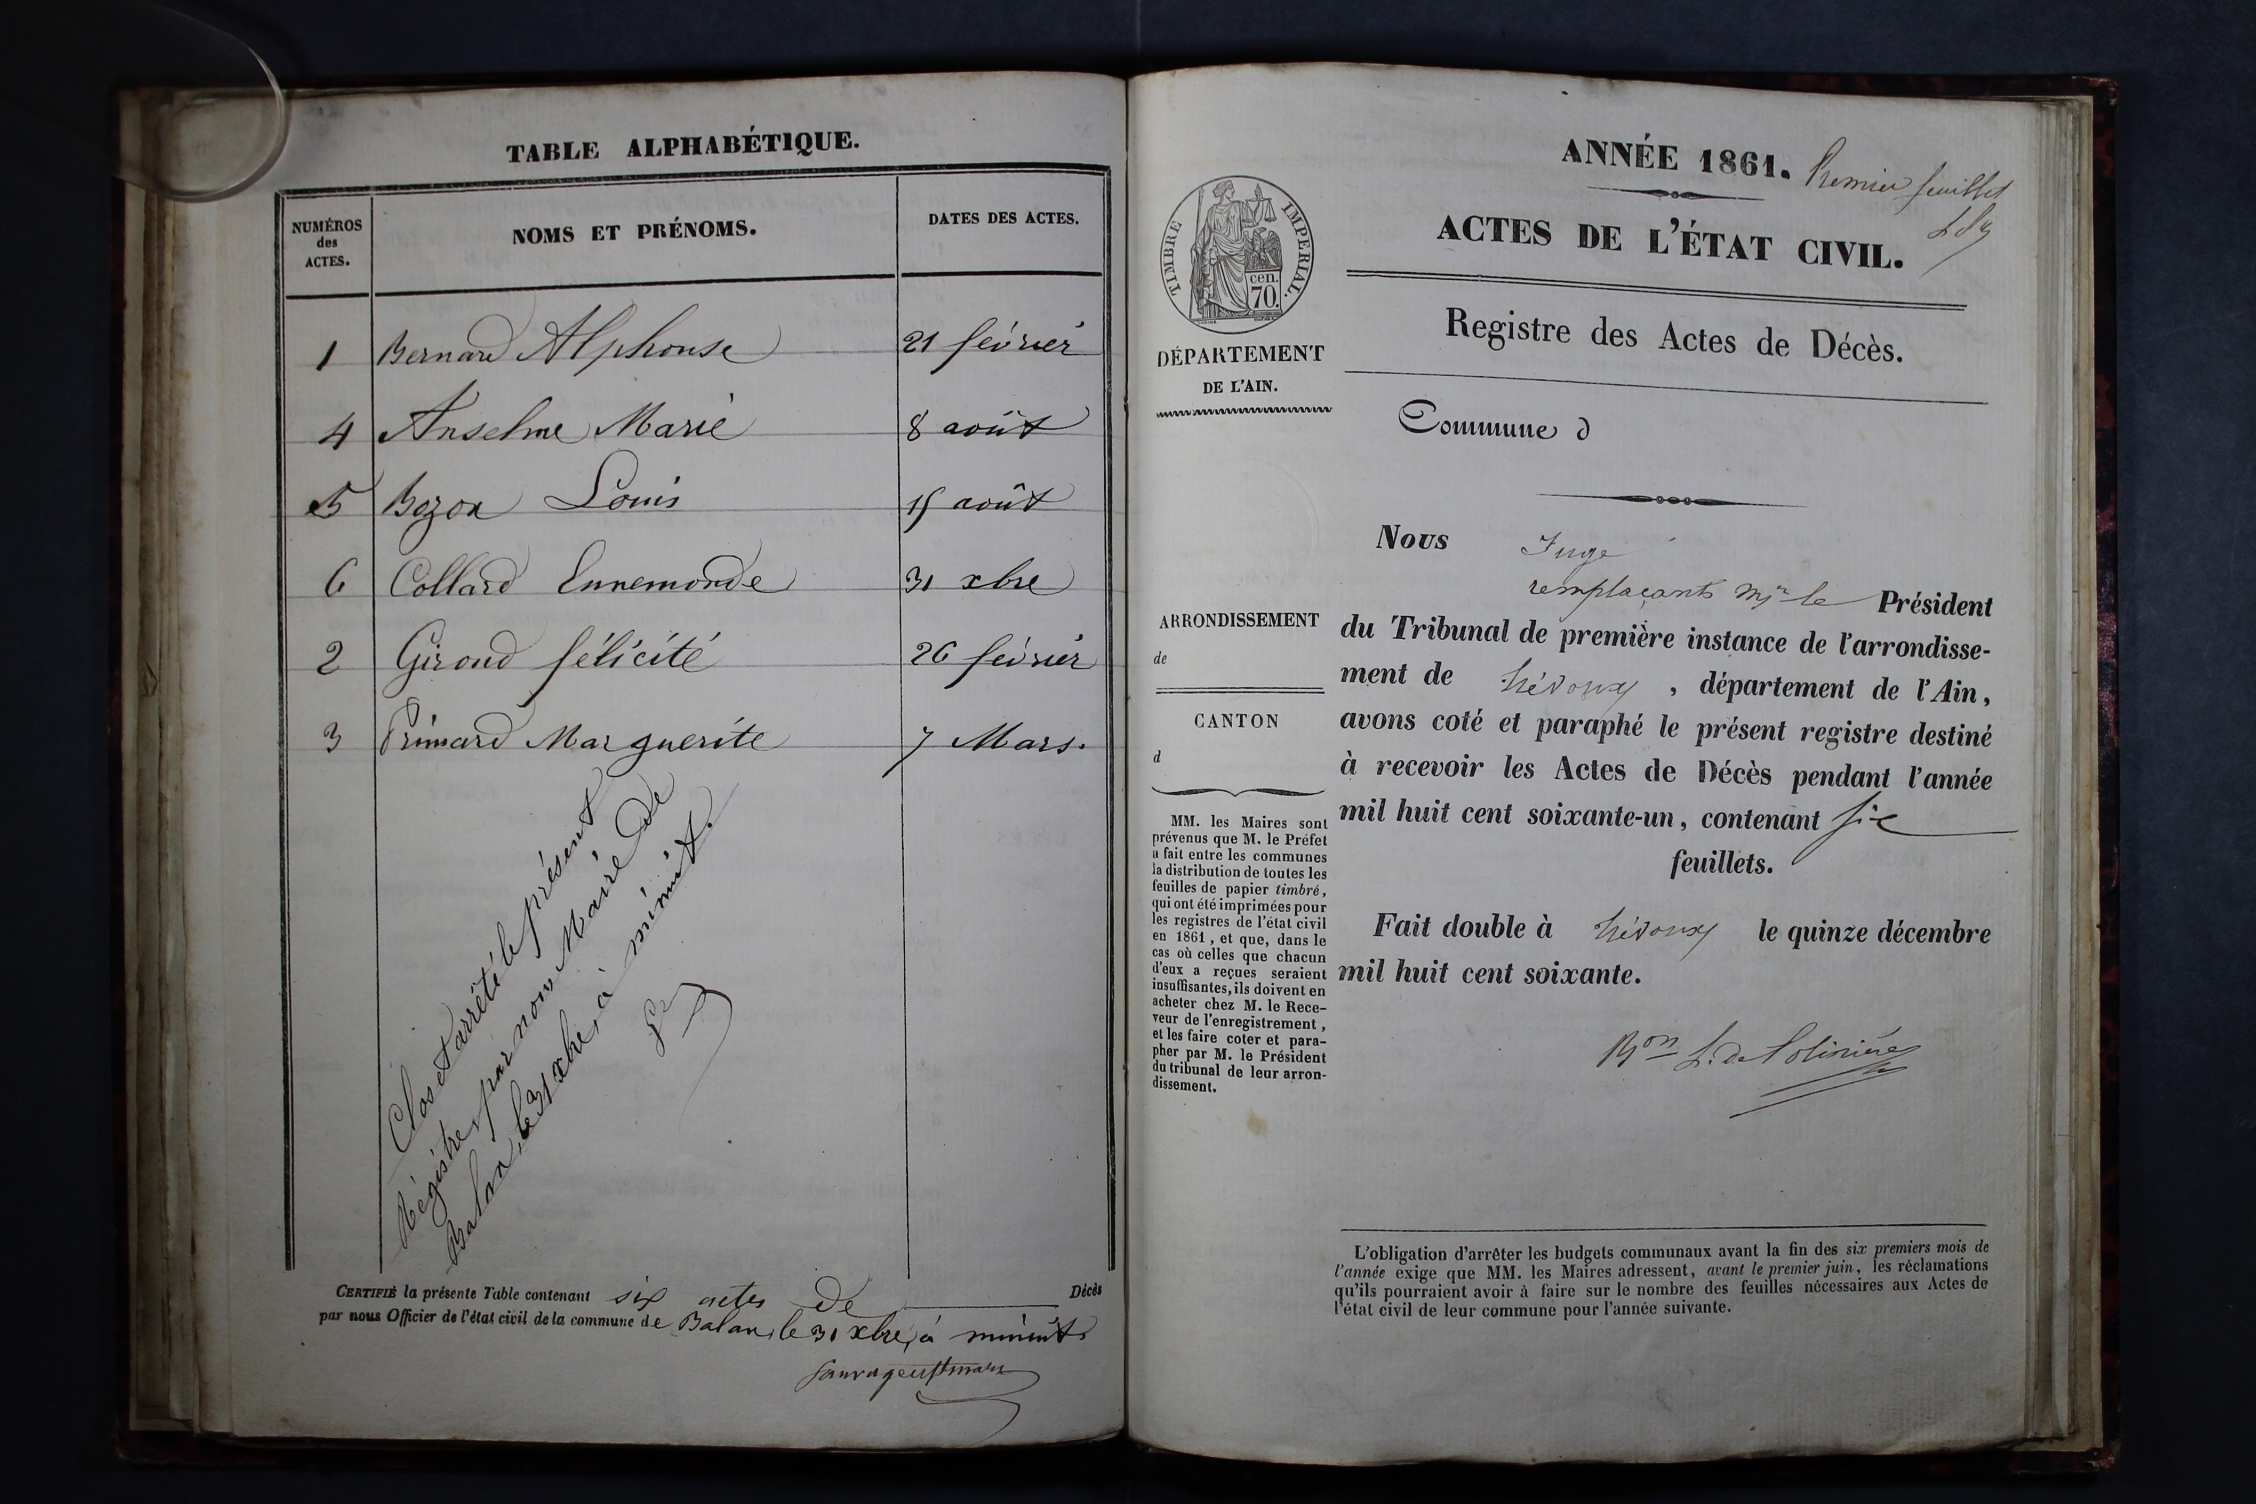 TABLE ALPHABÉTIQUE.
NUMÉROS
des
ACTES.
NOMS ET PRÉNOMS.
DATES DES ACTES.
1 Bernard Alphonse 21 février
4 Anselme Marie 8 août
5 Bozon Louis 15 août
6 Collard Ennemonde 31 xbre
2 Giroud félicité 26 février
3 Primard Marguerite 7 Mars.
Clos et arrêté le présent
Régistre par nous Maire de
Balan, le 31 xbre, à minuit.
CERTIFIÉ la présente Table contenant six actes de Décès
par nous Officier de l'état civil de la commune de Balan, le 31 xbre, à minuit.
ANNÉE 1861. Premier feuillet
ACTES DE L'ÉTAT CIVIL.
TIMBRE IMPERIAL.
cen.
70.
DÉPARTEMENT
DE L'AIN.
Registre des Actes de Décès.
Commune d
Nous Juge
remplaçant Mr le Président
du Tribunal de première instance de l'arrondisse-
ment de Trévoux, département de l'Ain,
avons coté et paraphé le présent registre destiné
à recevoir les Actes de Décès pendant l'année
mil huit cent soixante-un, contenant six
feuillets.
Fait double à Trévoux le quinze décembre
mil huit cent soixante.
Bon L. de Polinière
ARRONDISSEMENT
de
CANTON
d
MM. les Maires sont
prévenus que M. le Préfet
a fait entre les communes
la distribution de toutes les
feuilles de papier timbré,
qui ont été imprimées pour
les registres de l'état civil
en 1861, et que, dans le
cas où celles que chacun
d'eux a reçues seraient
insuffisantes, ils doivent en
acheter chez M. le Rece-
veur de l'enregistrement,
et les faire coter et para-
pher par M. le Président
du tribunal de leur arron-
dissement.
L'obligation d'arrêter les budgets communaux avant la fin des six premiers mois de
l'année exige que MM. les Maires adressent, avant le premier juin, les réclamations
qu'ils pourraient avoir à faire sur le nombre des feuilles nécessaires aux Actes de
l'état civil de leur commune pour l'année suivante.